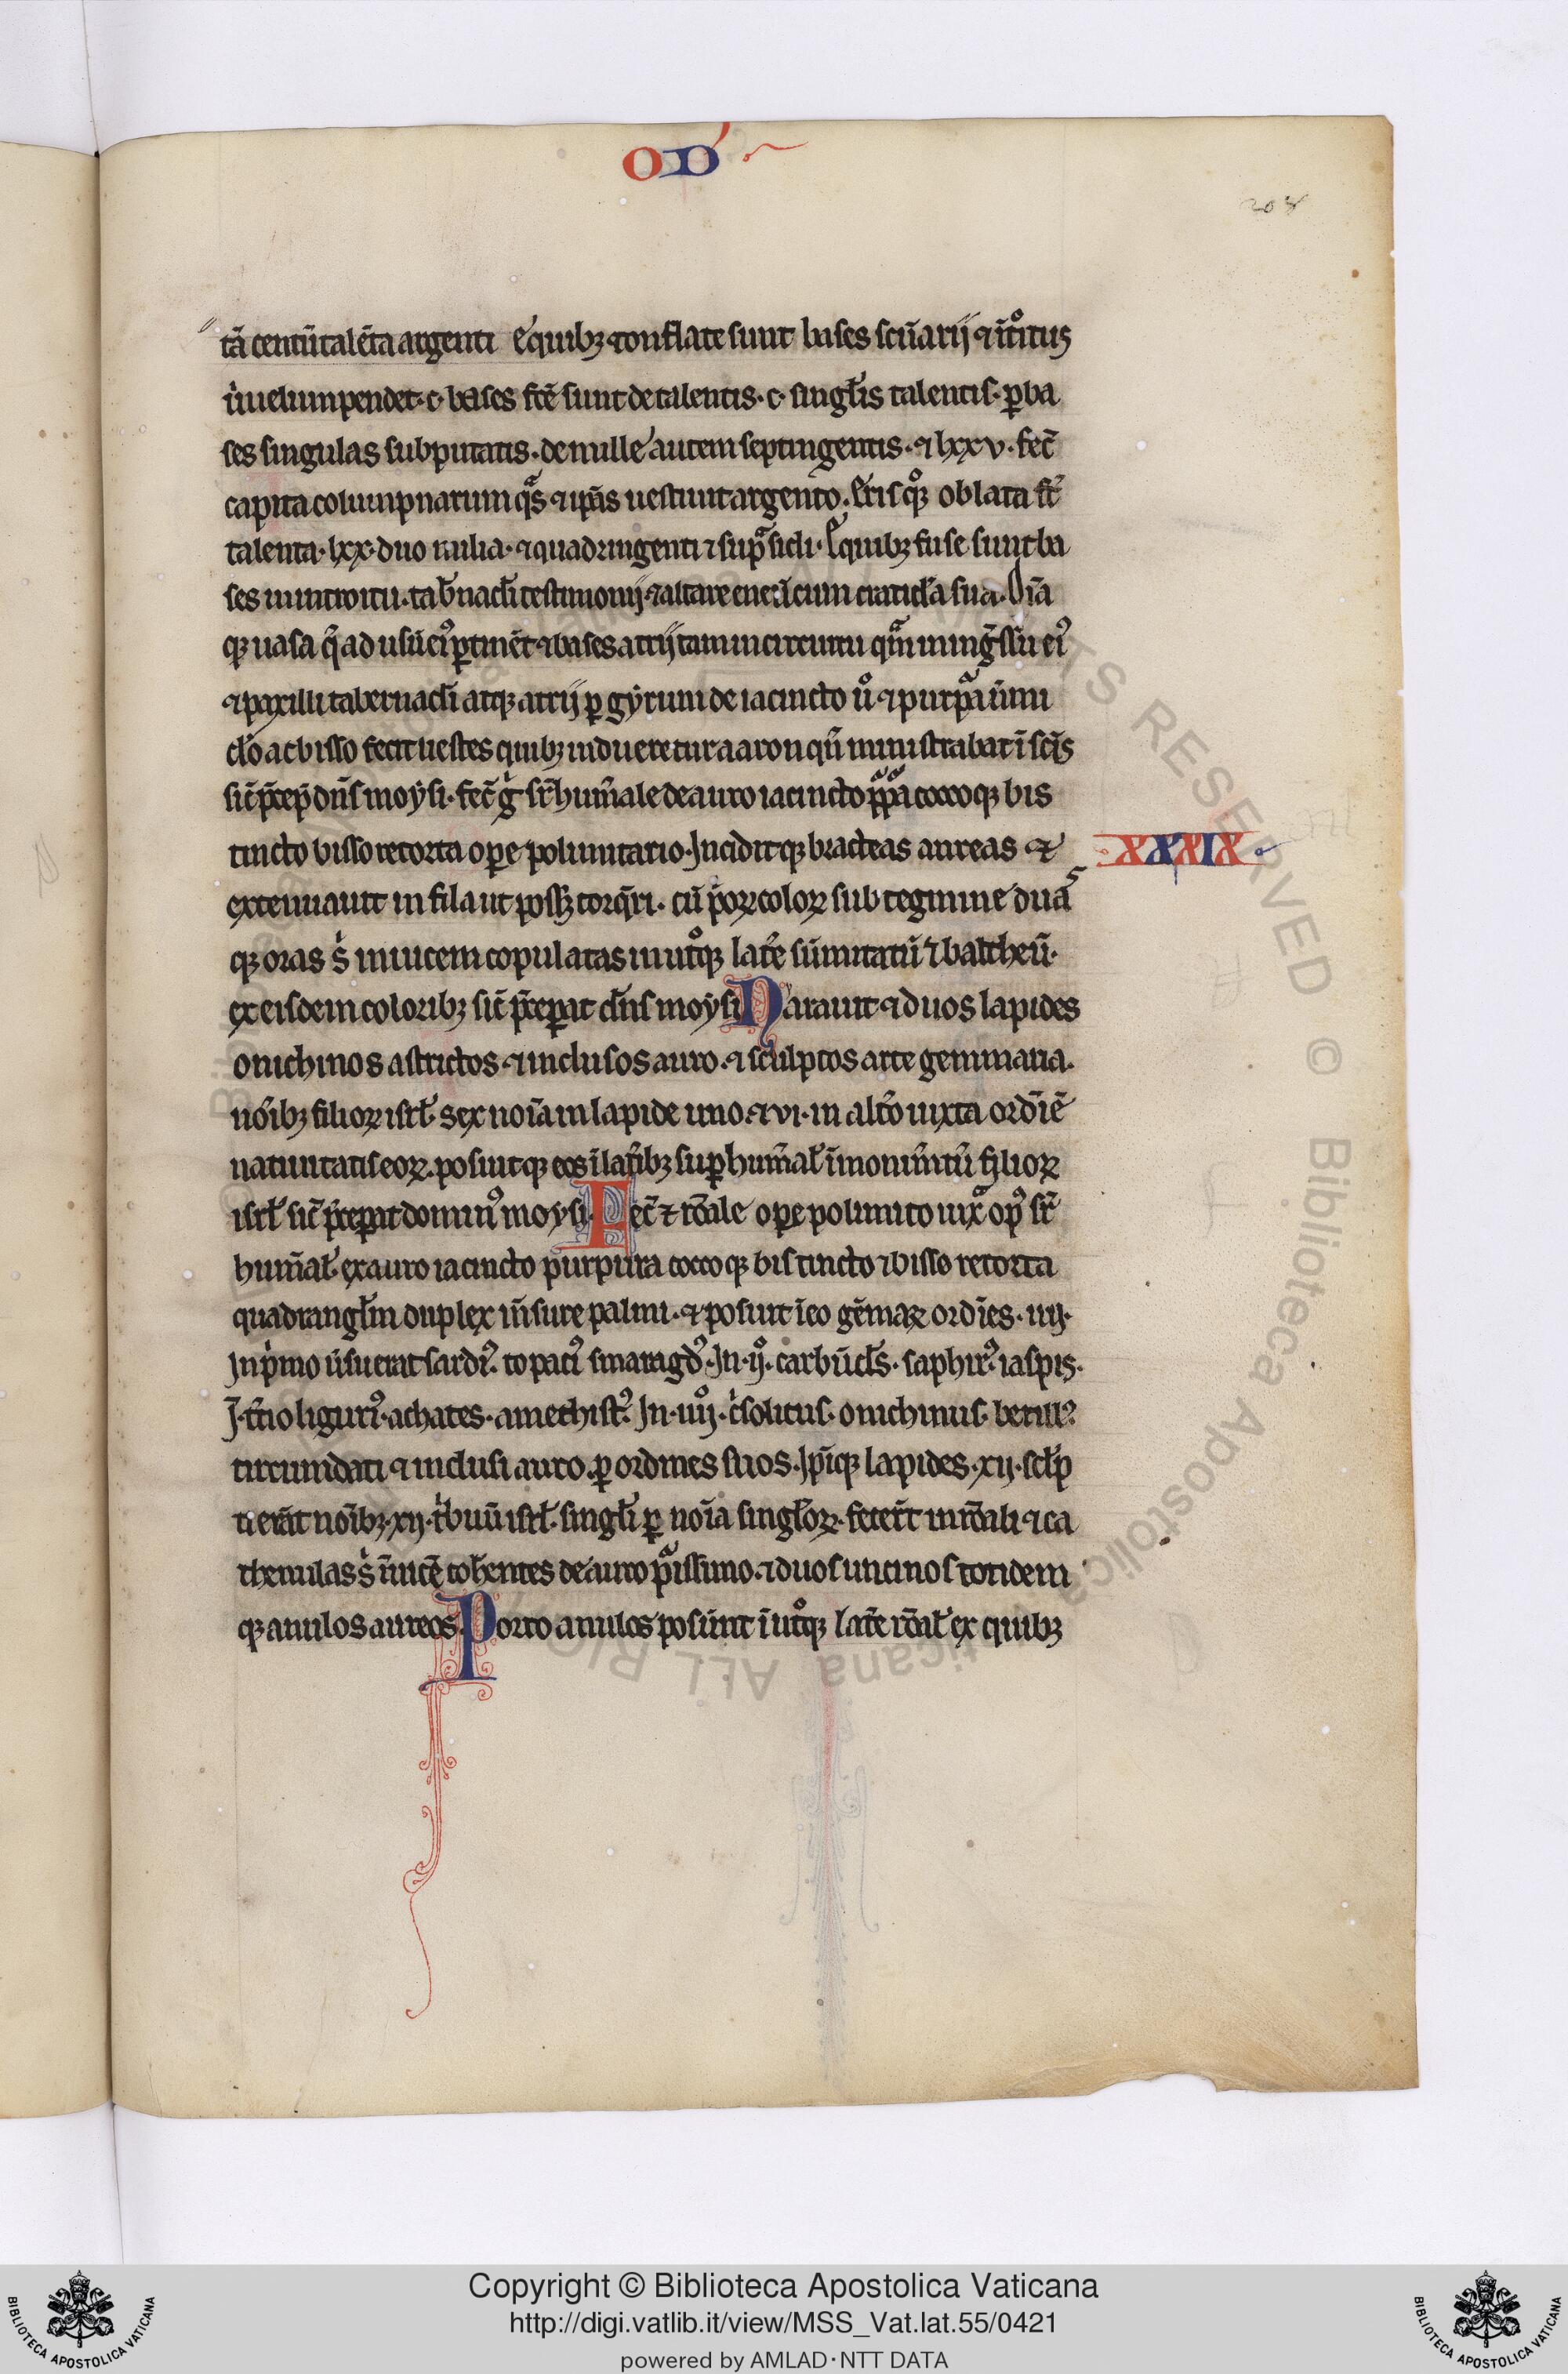 OD
208
tā centū talēta argenti e quibꝫ conflate sunt bases scūarij ⁊ ītͦitus
ůi uelum pendet · c · bases fcē sunt de talentis · c · singłis talentis · ꝑ ba
ses singulas subputatis · de mille autem septingentis · ⁊ lxxv · fec̄
capita columpnarum qͣs ⁊ ip̄as uestiuit argento · Eris qͦꝫ oblata st̄
talenta · lxx · duo milia · ⁊ quadringenti ⁊ supͣ sicli · E quibꝫ fuse sunt ba
ses in introitu · tab̄nacłi testimonij · ⁊ altare eneū cum craticła sua · Oīa
qꝫ uasa q̄ ad usū eiꝰ ꝑtinēt ⁊ bases atrij tam in circuitu qͣm in ingͣssu eiꝰ
⁊ paxilli tabernacłi atqꝫ atrij ꝑ gyrum de iacincto uͦ ⁊ purpͣa ůmi
cło ac bisso fecit uestes quibꝫ indueretur aaron qn̄ ministrabat ī sc̄is
sic̄ p̄cep̄ dn̄s moysi · fec̄ gͥ sr̄hum̄ale de auro iacincto pͣpͣa coccoqꝫ bis
tincto bisso retorta oꝑe polimitario · Inciditqꝫ bracteas aureas ⁊
XXXIX
extenuauit in fila ut possꝫ torq̄ri · cū pͥoꝝ coloꝝ subtegmine duas
qꝫ oras sͥ inuicem copulatas in utͦqꝫ lat̄e sūmitatū ⁊ baltheū ·
ex eisdem coloribꝫ sic̄ p̄ceꝑat dn̄s moysi Parauit ⁊ duos lapides
onichinos astrictos · ⁊ inclusos auro · ⁊ sculptos arte gemmaria ·
noībꝫ filioꝝ isrł · sex noīa in lapide uno · ⁊ vi · in alt̄o iuxta ordīē
natiuitatis eoꝝ · posuitqꝫ eos ī lat̄ibꝫ suꝑhum̄ał ī monum̄tū filioꝝ
isrł sic̄ p̄ceꝑat dominꝰ moysi · Fec̄ ⁊ rōale oꝑe polimito iuxͣ opꝰ sr̄
hum̄ał ex auro iacincto purpura coccoqꝫ bis tincto ⁊ bisso retorta
quadrangłm duplex m̄sure palmi · ⁊ posuit ī eo gēmaꝝ ordīes · iiij ·
In pͥmo ůsu erat sardiꝰ · topaciꝰ smaragdꝰ · In · ijͦ · carbūcłs · saphirꝰ iaspis ·
I · t̄cio liguriꝰ · achates · amethistꝰ · In · iiijͦ · cͥsolitus · onichinus · berillꝰ
circumdati ⁊ inclusi auro · ꝑ ordines suos · Ip̄iqꝫ lapides · xij · scłp
ti erāt noībꝫ · xij · tͥbuū isrł · singłi ꝑ noīa singłoꝝ · fecer̄t in rōali ⁊ ca
thenulas sͥ īuicē coh̄entes de auro pͥissimo · ⁊ duos uncinos totidem
qꝫ anulos aureos Porro anulos posūnt ī utͦqꝫ lat̄e rōał ex quibꝫ
Copyright © Biblioteca Apostolica Vaticana
http://digi.vatlib.it/view/MSS_Vat.lat.55/0421
powered by AMLAD·NTT DATA
BIBLIOTECA APOSTOLICA VATICANA
BIBLIOTECA APOSTOLICA VATICANA